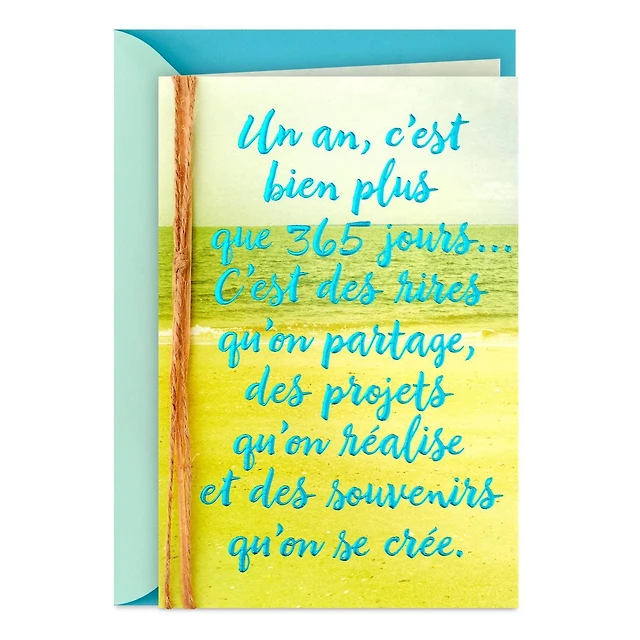 Un an, c'est
bien plus
que 365 jours...
C'est des rires
qu'on partage,
des projets
qu'on réalise
et des souvenirs
qu'on se crée.